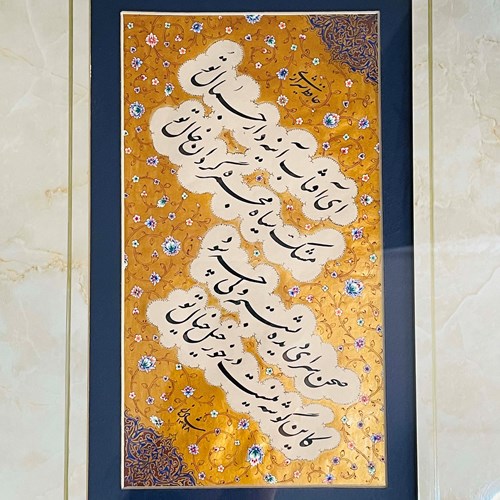 حافظ شیرازی
ای آفتاب آینه دار جمال تو
مشک سیاه مجمره گردان خال تو
صحن سرای دیده بشستم ولی چه سود
کاین گوشه نیست در خور خیل خیال تو